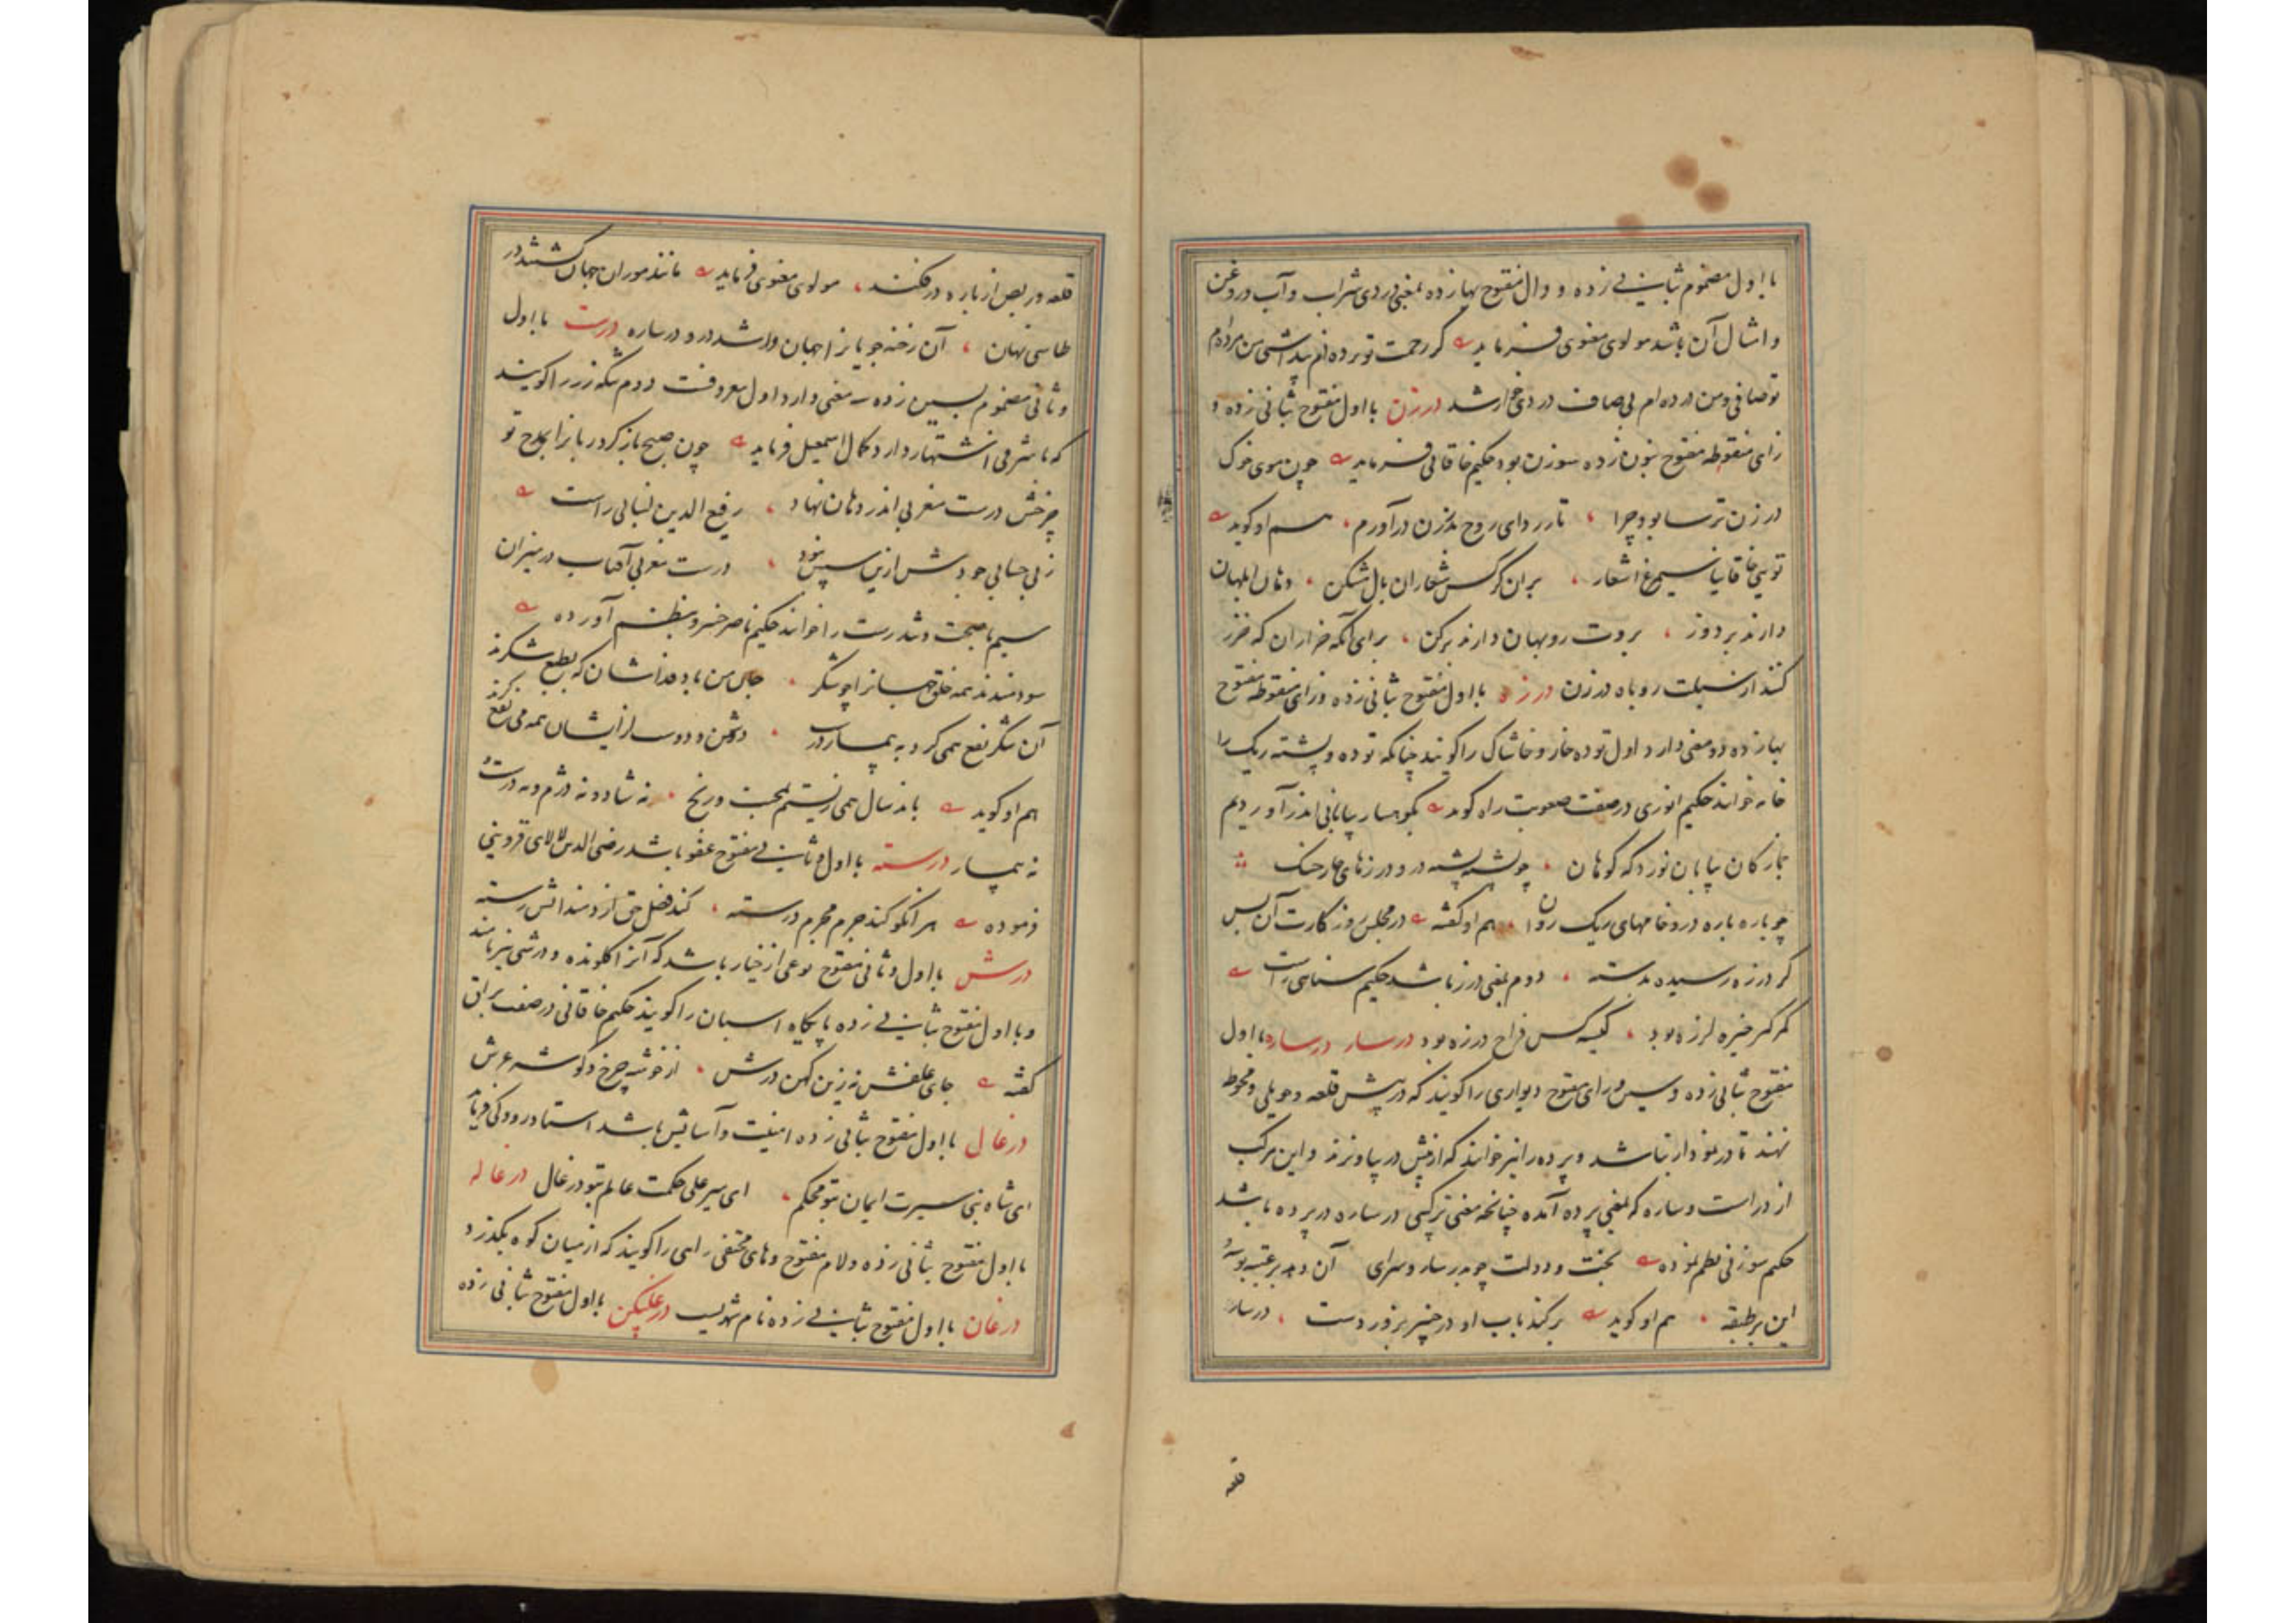 با اول مضموم بثانی زده و دال مفتوح بها زده بمعنی دردی شراب و آب و روغن
و امثال آن باشد مولوی معنوی فرماید گر رحمت تو مرده ام
تو صافی و من درده ام بی صاف دردی خوار شد درزن با اول مفتوح بثانی زده و
زای منقوطه مفتوح بنون زده سوزن بود حکیم خاقانی فرماید چون موی خوک
در زن ترسا بود چرا تار ردای روح بدرزن درآورم هم او گوید
تویی خاقانیا سیمرغ اشعار بران کرکس شعاران بال بشکن دهان ابلهان
دارند بردوز بروت روبهان دارند برکن برای آنکه خزاران گه خزر
کنند از سبلت روباه درزن درزه با اول مفتوح بثانی زده و زای منقوطه مفتوح
بها زده دو معنی دارد اول توده خار و خاشاک را گویند چنانکه توده و پشته ریک را
خانه خوانند حکیم انوری در صفت صعوبت راه گوید بکوهسار بیابانی اندر آوردیم
جمازگان بیابان نورد که کوهان چو پشته پشته درو درزهای خار خشک
چو باره باره درو خامهای ریک روان هم او گفته در مجلس روزگارت آن بس
کز درزه رسیده بدسته دوم بمعنی درز باشد حکیم سنایی راست
گر خیره لرزه بود کیسه کس فراخ درزه بود درسار درساره با اول
مفتوح بثانی زده و سین و رای مفتوح دیواری را گویند که در پیش قلعه و حویلی و محوطه
نهند تا درنمودار نباشد و پرده را نیز خوانند که از پیش در بیاویزند و این مرکب
از در است و ساره که بمعنی پرده آمده چنانچه معنی ترکیبی درساره در پرده باشد
حکیم سوزنی نظم نموده بخت و دولت چو بدرسار و سرای آن دهد بر عتبه بوسه
این بر طبقه هم او گوید برکند باب او در خیبر بزور دست درسار
قلعه
قلعه و ربض از باره در فکند مولوی معنوی فرماید مانند موران جهان گشتند در
طاسی نهان آن رخنه جویانرا جهان وا شد در و درساره درست با اول
و ثانی مضموم بسین زده سه معنی دارد اول معروفست دوم سکه زر را گویند
که باشرفی اشتهار دارد کمال اسمعیل فرماید چون صبح باز کرد دهانرا بمدح تو
چرخش درست مغربی اندر دهان نهاد رفیع الدین لنبانی راست
ز بی حسابی جودش ازین سپس نبود درست مغربی آفتاب در میزان
سیم با صحت و تندرست را خوانند حکیم ناصر خسرو بنظم آورده
سودمندند همه خلق جهانرا چو شکر جان من باد فداشان که بطبع شکرند
آن شکر نفع همی کرد به بیمار و درست دشمن و دوست از ایشان همه می نفع برند
هم او گوید باند سال همی زیستم بمحنت و رنج نه شاد و نه دژم و نه درست و
نه بیمار درسته با اول و ثانی مفتوح عفو باشد رضی الدین لالای قزوینی
فرموده هر انکو کند جرم مجرم درسته کند فضل حق از دمندانش رسته
درش با اول و ثانی مفتوح نوعی از خیار باشد که آنرا کلونده و درشی نیز نامند
و با اول مفتوح بثانی زده پایگاه اسبان را گویند حکیم خاقانی در صفت براق
گفته جای علفش نه زین کهن درش از خوشه چرخ و گوشه عرش
درغال با اول مفتوح بثانی زده امنیت و آسایش باشد استاد رودکی فرماید
ای شاه نبی سیرت ایمان بتو محکم ای میر علی حکمت عالم بتو درغال درغاله
با اول مفتوح بثانی زده و لام مفتوح و های مختفی راهی را گویند که از میان کوه بگذرد
درغان با اول مفتوح بثانی زده نام شهریست با اول مفتوح بثانی زده